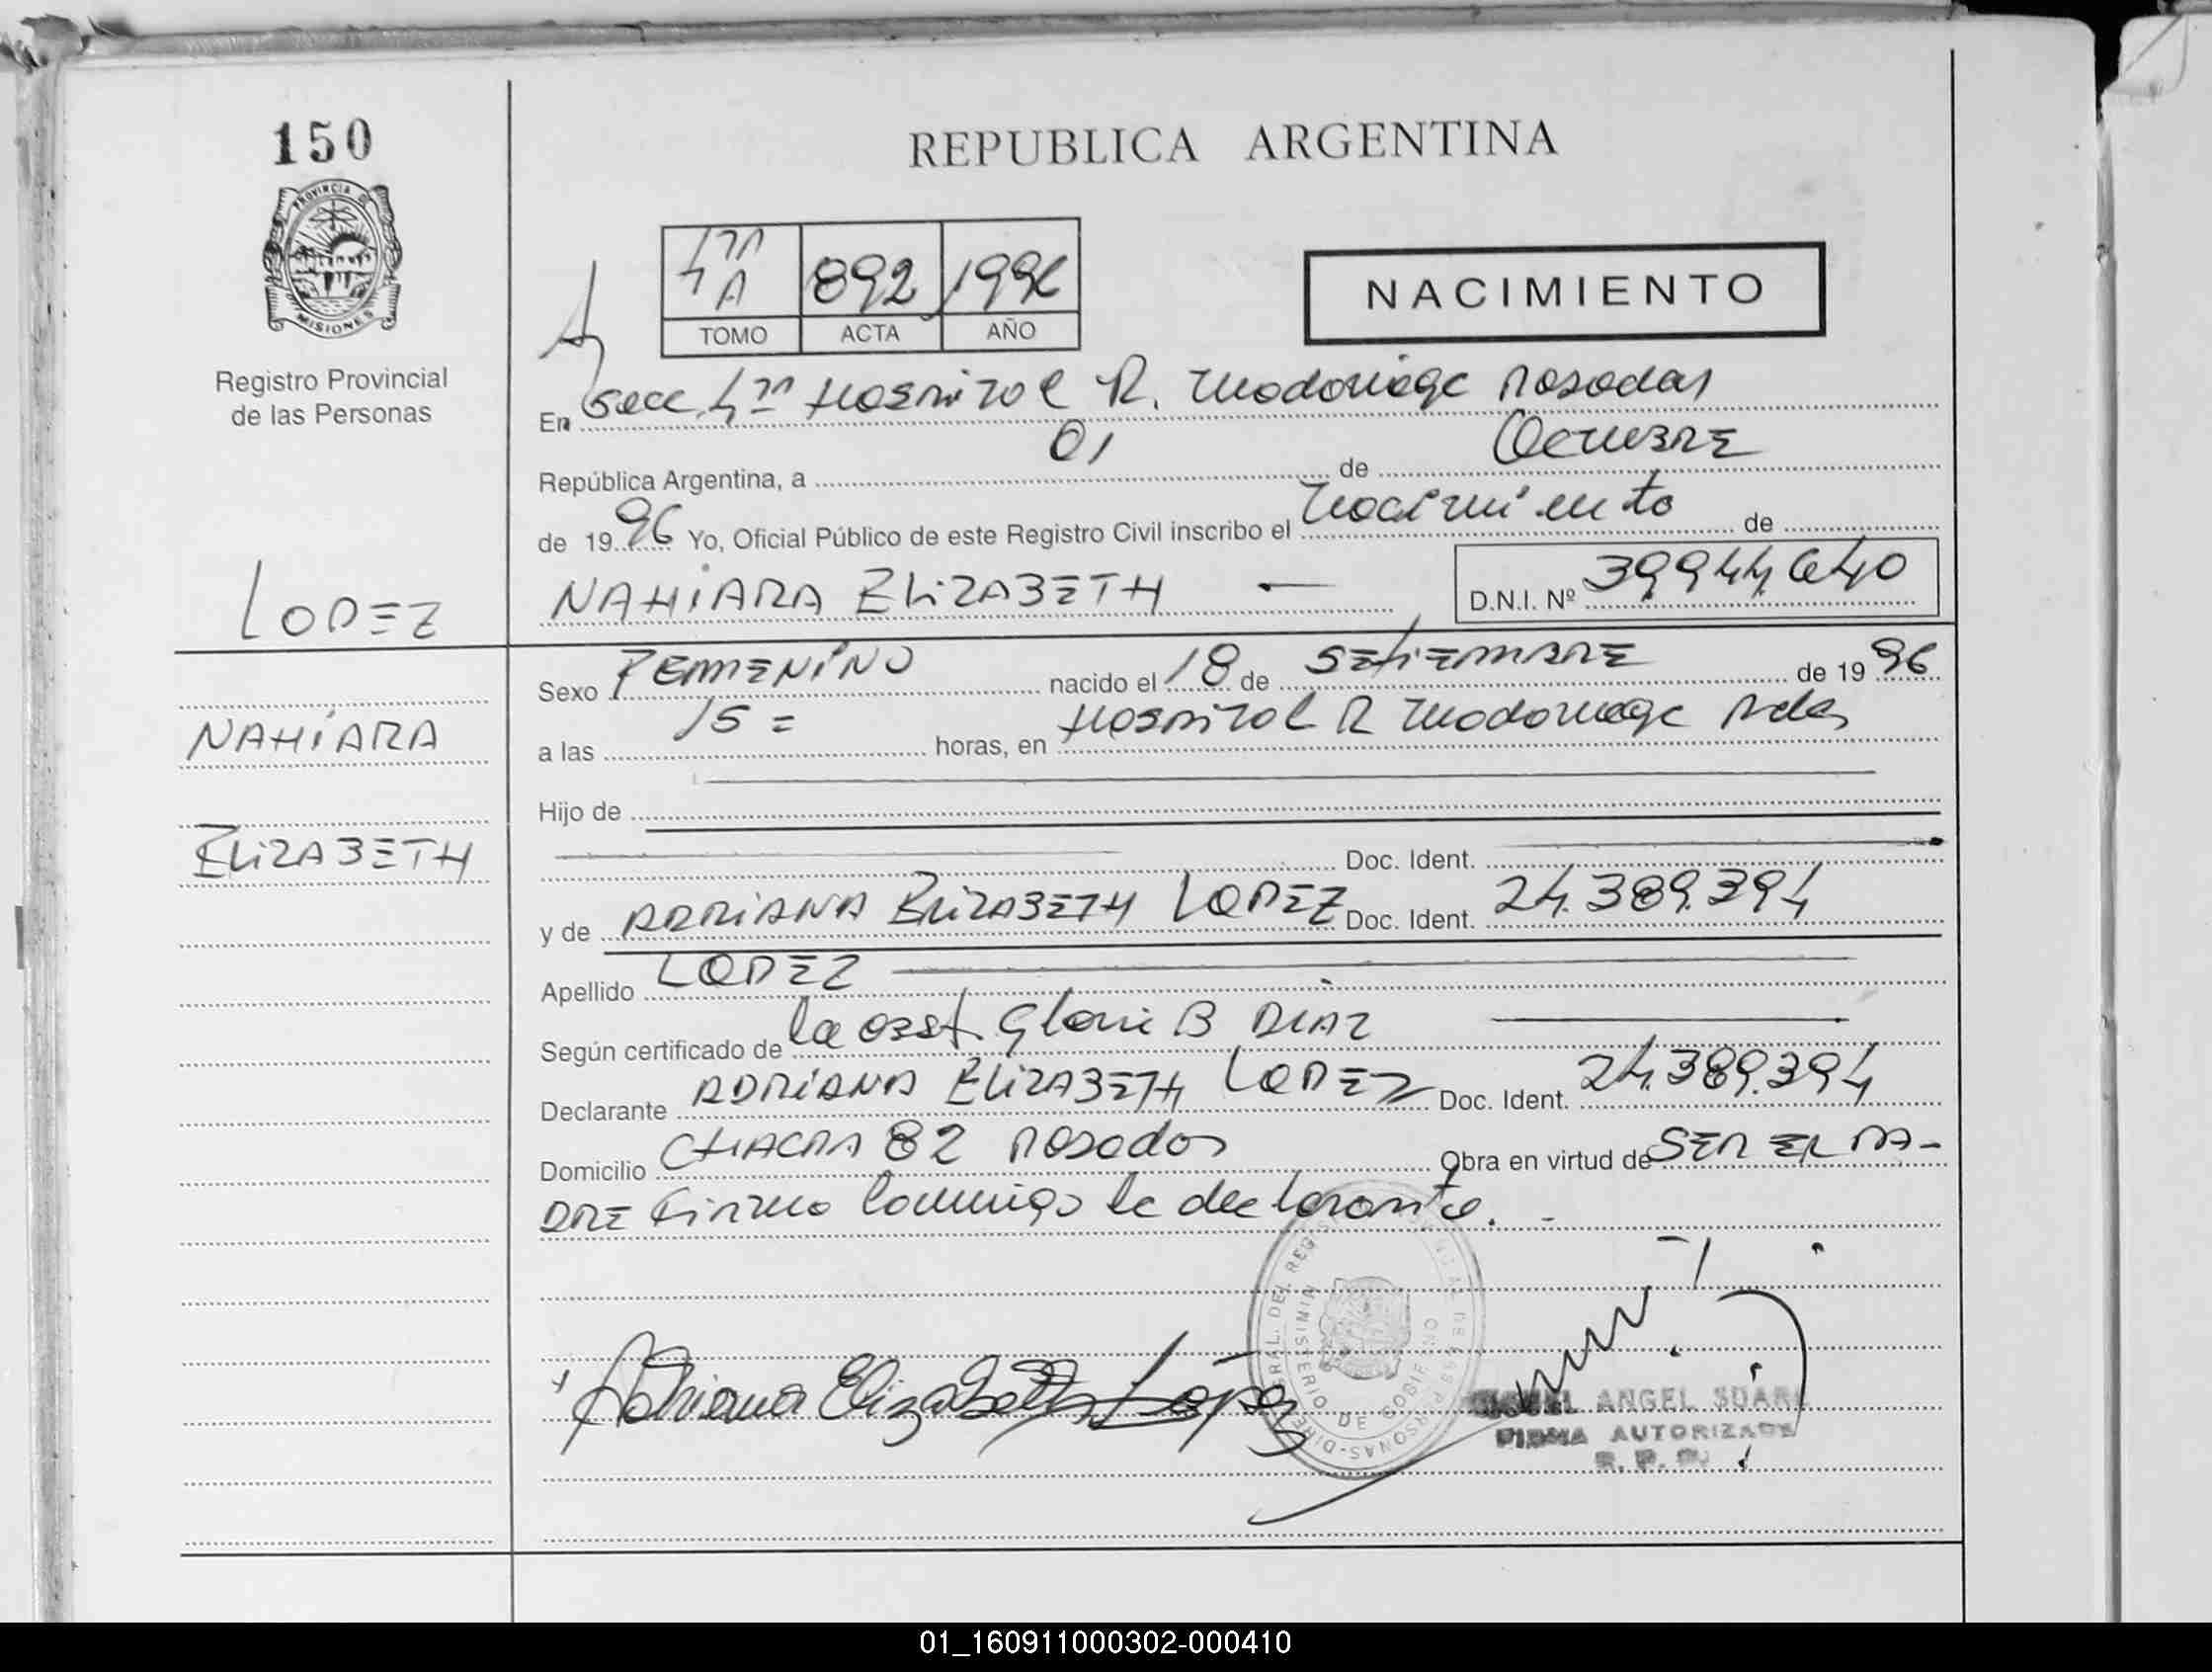 150
PROVINCIA DE
MISIONES
Registro Provincial
de las Personas
LOPEZ
NAHIARA
ELIZABETH
REPUBLICA ARGENTINA
892 1996
TOMO ACTA AÑO
NACIMIENTO
En Secc. Hospital R. Madariaga Posadas
República Argentina, a 01 de OCTUBRE
de 1996 Yo, Oficial Público de este Registro Civil inscribo el Nacimiento de
NAHIARA ELIZABETH — D.N.I. Nº 39944.640
Sexo FEMENINO nacido el 18 de SETIEMBRE de 1996
a las 15 = horas, en Hospital R Madariaga Pdas
Hijo de
Doc. Ident.
y de ADRIANA ELIZABETH LOPEZ Doc. Ident. 24.389.394
Apellido LOPEZ
Según certificado de la obst. Gloria B DIAZ
Declarante ADRIANA ELIZABETH LOPEZ Doc. Ident. 24.389.394
Domicilio CHACRA 82 Posadas Obra en virtud de SER EL PA-
DRE Firma conmigo la declarante. -
Adriana Elizabeth Lopez
ANGEL SUAR
FIRMA AUTORIZADA
01_160911000302-000410